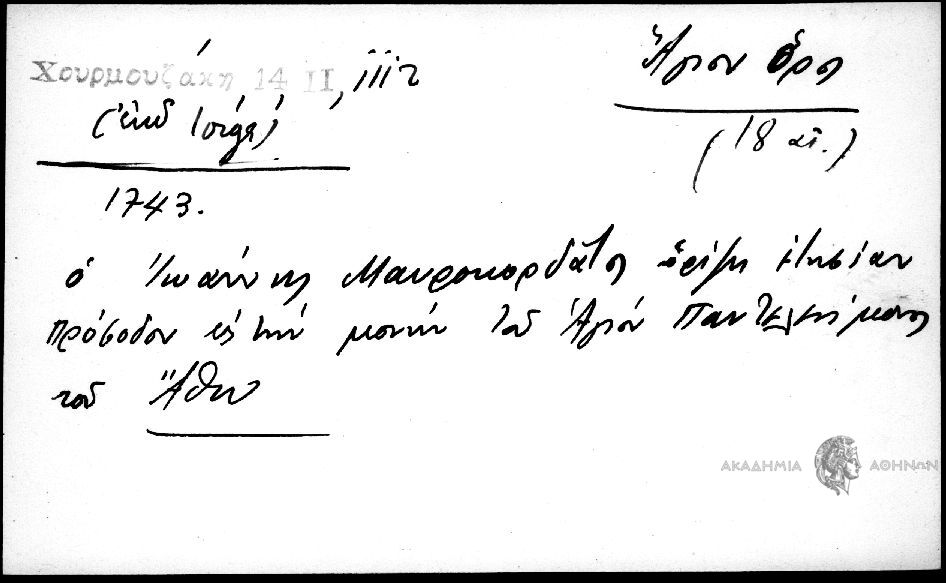 Χουρμουζάκη 14 II,
Ἅγιον Ὄρος
(18 αἰ.)
1743.
ὁ Ἰωάννης Μαυροκορδᾶτος ὁρίζει ἐτησίαν
πρόσοδον εἰς τὴν μονὴν τοῦ Ἁγίου Παντελεήμονος
τοῦ Ἄθω
ΑΚΑΔΗΜΙΑ ΑΘΗΝΩΝ